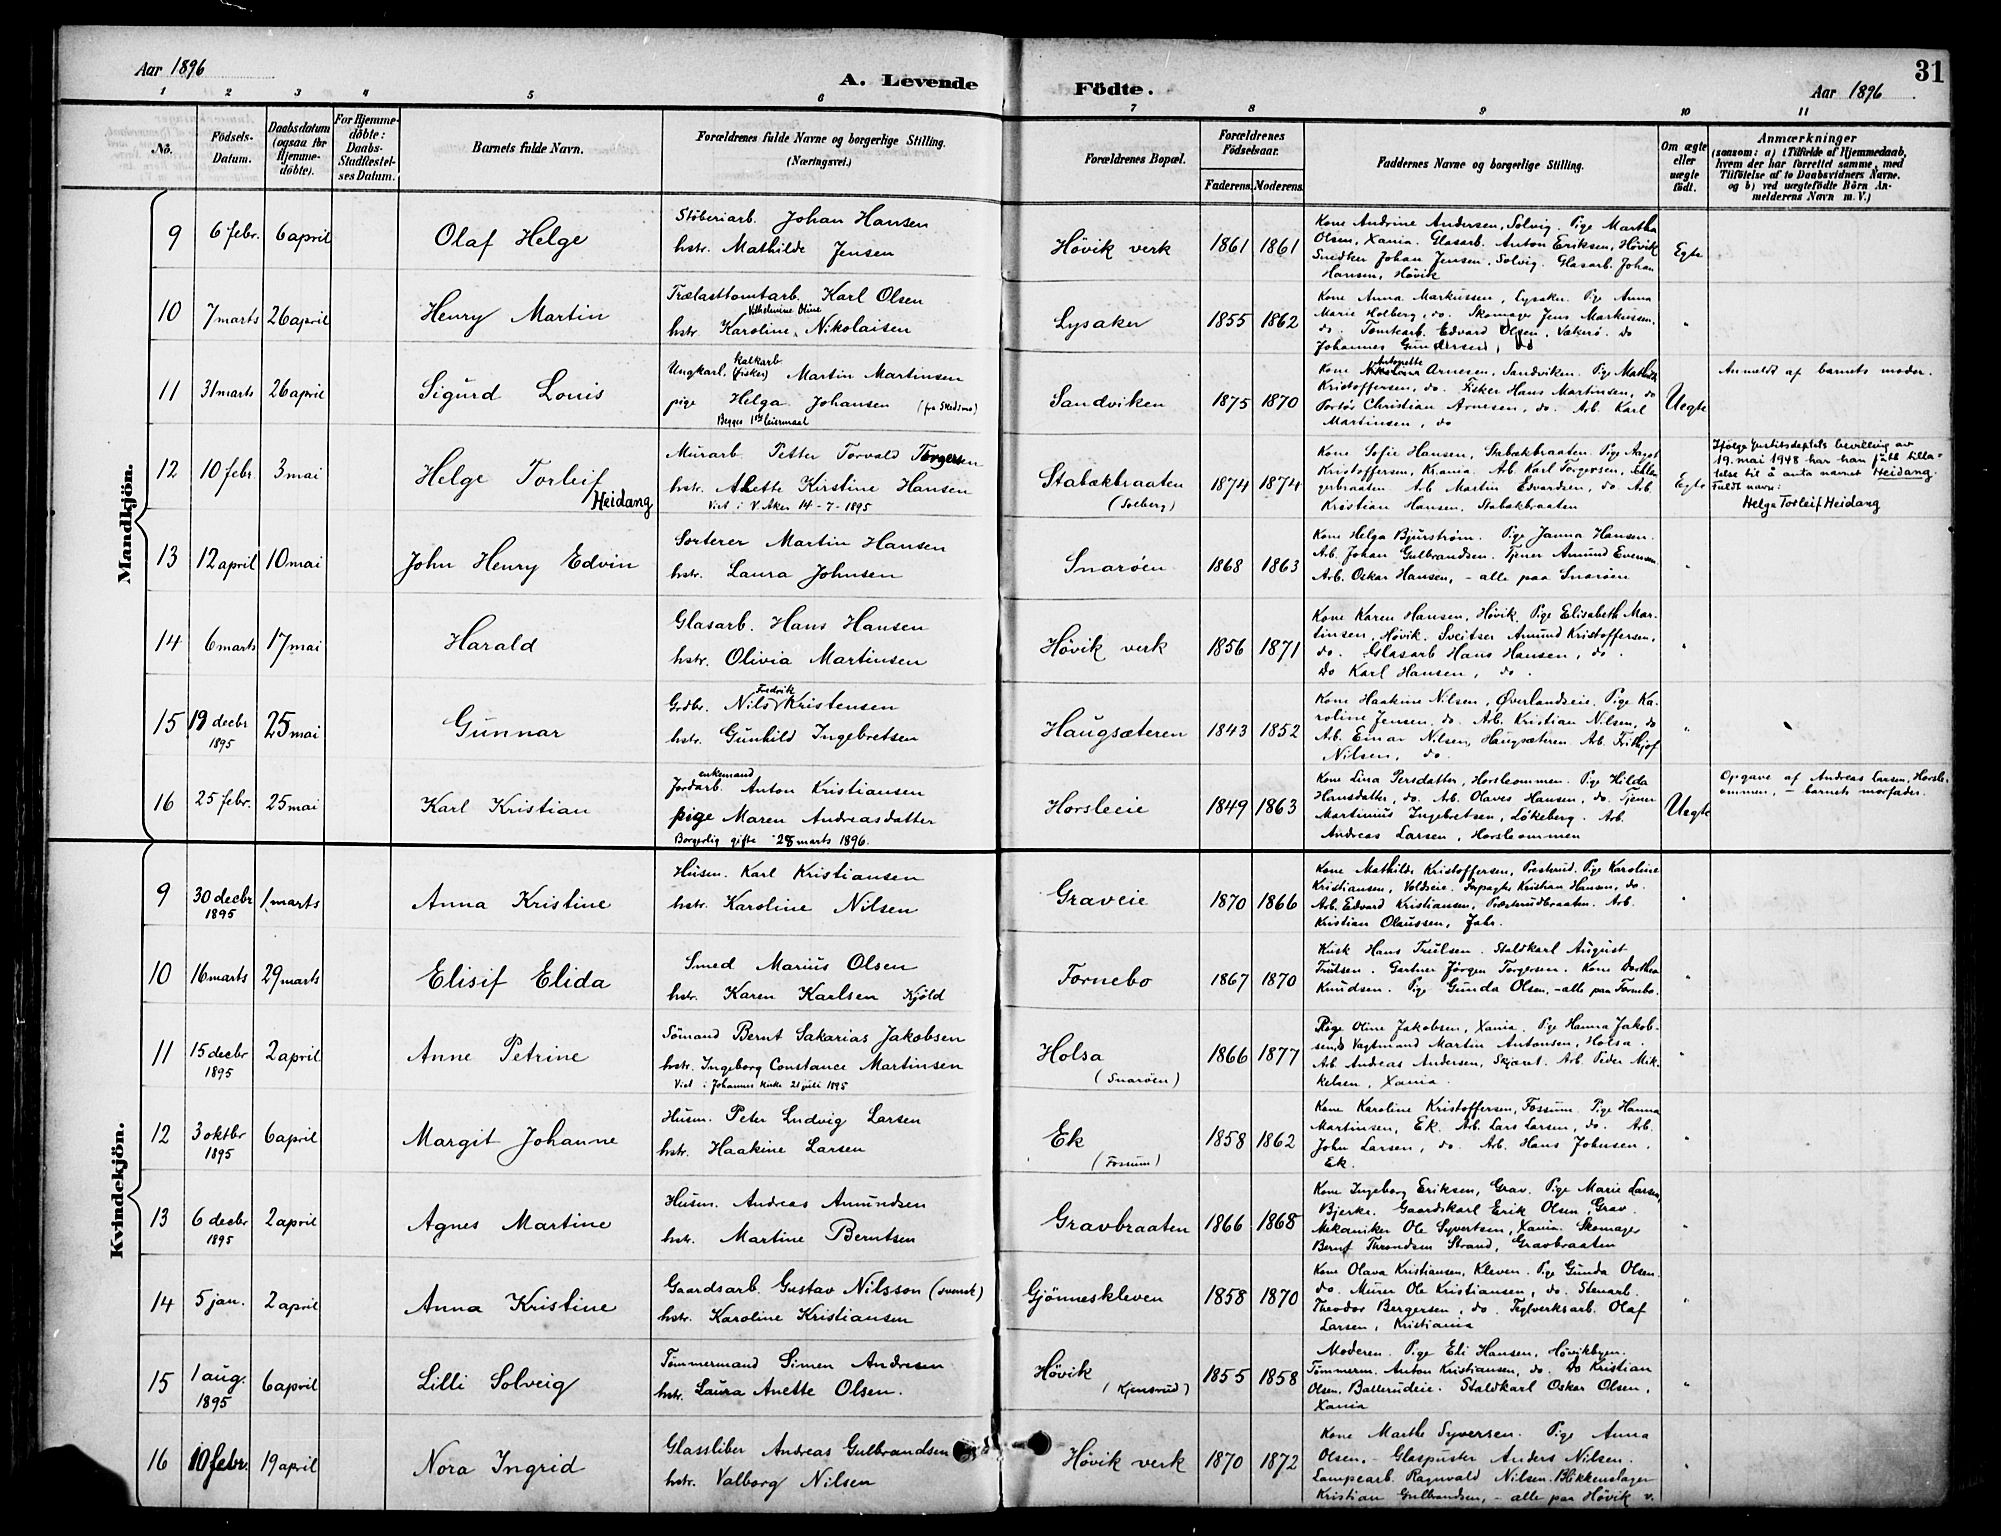 Aar 1896
A. Levende Födte.
Aar 1896
31
1 2 3 4 5 6 7 8 9 10 11
No.
Födsels-Datum.
Daabsdatum (ogsaa for Hjemme-döbte).
For Hjemme-döbte: Daabs-Stadfæstel-ses Datum.
Barnets fulde Navn.
Forældrenes fulde Navne og borgerlige Stilling. (Næringsvei.)
Forældrenes Bopæl.
Forældrenes Födselsaar.
Faderens. Moderens.
Faddernes Navne og borgerlige Stilling.
Om ægte eller uægte födt.
Anmærkninger
(saasom: a) i Tilfælde af Hjemmedaab, hvem der har forrettet samme, med Tilföielse af to Daabsvidners Navne. og b) ved uægtefödte Börn An-melderens Navn m. V.)
Mandkjön.
9 6 febr. 6 april Olaf Helge
Stöberiarb. Johan Hansen
hstr. Mathilde Jensen
Hövik verk 1861 1861
Kone Andrine Andersen, Solvig. Pige Martha
Olsen, Xania. Glasarb. Anton Eriksen, Hövik
Snedker Johan Jensen, Solvig. Glasarb. Johan
Hansen, Hövik
Egte
10 7 marts 26 april Henry Martin
Trælasttomtarb. Karl Olsen
Vilhelmine Oline
hstr. Karoline Nikolaisen
Lysaker 1855 1862
Kone Anna Markussen, Lysaker. Pige Anna
Marie Holberg, do. Skomager Jens Markussen,
do. Tomtearb. Edvard Olsen, Vækerö. Do
Johannes Gundersen, do
"
11 31 marts 26 april Sigurd Louis
kalkarb
Ungkarl, (fisker) Martin Martinsen
pige Helga Johansen (fra Skedsmo)
Begges 1ste leiermaal
Sandviken 1875 1870
Antonette
Kone Arnesen, Sandviken. Pige Mathilde
Kristoffersen, do. Fisker Hans Martinsen, do
Portör Christian Arnesen, do. Arb. Karl
Martinsen, do
Uegte
Anmeldt af barnets moder.
12 10 febr. 3 mai Helge Torleif
Heidang
Murarb. Petter Torvald Torgersen
hstr. Alette Kirstine Hansen
Viet i V. Aker 14-7-1895
Stabækbraaten
(Solberg)
1874 1874
Kone Sofie Hansen, Stabækbraaten. Pige Aagot
Kristoffersen, Krania. Arb. Karl Torgersen,
Arb Martin Edvardsen, do. Arb.
Kristian Hansen, Stabækbraaten
Egte
Ifølge Justitsdeptets bevilling av
19. mai 1948 har han fått tilla-
telse til å anta navnet Heidang.
Fuldt navn:
Helge Torleif Heidang
13 12 april 10 mai John Henry Edvin
Sorterer Martin Hansen
hstr. Laura Johnsen
Snaröen 1868 1863
Kone Helga Bjurström. Pige Janna Hansen.
Arb. Johan Gulbrandsen. Tjener Amund Evensen
Arb. Oskar Hansen, – alle paa Snaröen
"
14 6 marts 17 mai Harald
Glasarb. Hans Hansen
hstr. Olivia Martinsen
Hövik verk 1856 1871
Kone Karen Hansen, Hövik. Pige Elisabeth Mar-
tinsen, Hövik. Sveitser Amund Kristoffersen,
do. Glasarb Hans Hansen, do.
Do Karl Hansen, do.
"
15 19 decbr 1895 25 mai Gunnar
Fredrik
Grdbr. Nils Kristensen
hstr. Gunhild Ingebretsen
Haugsæteren 1843 1852
Kone Haakine Nilsen, Øverlandseie. Pige Ka-
roline Jensen, do. Arb. Kristian Nilsen, do
Arb. Einar Nilsen, Haugsæteren. Arb. Frithjof
Nilsen, do.
"
16 25 febr. 25 mai Karl Kristian
enkemand
Jordarb. Anton Kristiansen
pige Maren Andreasdatter
Borgerlig gifte 28 marts 1896.
Horsleeie 1849 1863
Kone Lina Persdatter, Horsleommen. Pige Hilda
Hansdatter, do. Arb. Olaves Hansen, do. Tjener
Martinius Ingebretsen, Lökeberg. Arb.
Andreas Larsen, Horsleommen
Uegte
Opgave af Andreas Larsen, Horsle-
ommen, – barnets morfader.
Kvindekjön.
9 30 decbr 1895 1 marts Anna Kristine
Husm. Karl Kristiansen
hstr. Karoline Nilsen
Graveie 1870 1866
Kone Mathilde Kristoffersen, Presterud. Pige Karoline
Kristiansen, Voldseie. Forpagter Kristian Hansen, do.
Arb. Edvard Kristiansen, Præsterudbraaten. Arb.
Kristian Olaussen, Jahr.
"
10 16 marts 29 marts Elisif Elida
Smed Marius Olsen
hstr. Karen Karlsen Kjöld
Fornebo 1867 1870
Kusk Hans Trulsen. Staldkarl August
Trulsen. Gartner Jörgen Torgersen. Kone Dorthea
Knudsen. Pige Gunda Olsen, – alle paa Fornebo.
"
11 15 decbr 1895 2 april Anne Petrine
Sömand Bernt Sakarias Jakobsen
hstr. Ingeborg Constance Martinsen
Viet i Johannes kirke 21 juli 1895
Holsa
(Snaröen)
1866 1877
Pige Oline Jakobsen, Xania. Pige Hanna Jakob-
sen, do Vagtmand Martin Antonsen, Holsa.
Arb. Andreas Andersen, Skjæret. Arb. Peder Mik-
kelsen, Xania.
"
12 3 oktbr 1895 6 april Margit Johanne
Husm. Peter Ludvig Larsen
hstr. Haakine Larsen
Ek
(Fossum)
1858 1862
Kone Karoline Kristoffersen, Fossum. Pige Hanna
Martinsen, Ek. Arb. Lars Larsen, do. Arb.
John Larsen, do. Arb. Hans Johnsen,
Ek.
"
13 6 decbr 1895 2 april Agnes Martine
Husm. Andreas Amundsen
hstr. Martine Berntsen
Gravbraaten 1866 1868
Kone Ingeborg Eriksen, Grav. Pige Marie Larsen,
Bjerke. Gaardskarl Erik Olsen, Grav.
Mekaniker Ole Syvertsen, Xania. Skomager
Bernt Throndsen Strand, Gravbraaten
"
14 5 jan. 2 april Anna Kristine
Gaardsarb. Gustav Nilsson (svensk)
hstr. Karoline Kristiansen
Gjönneskleven 1858 1870
Kone Olava Kristiansen, Kleven. Pige Gunda Olsen.
do. Murer Ole Kristiansen, do. Stenarb.
Theodor Bergersen, do. Teglverksarb. Olaf
Larsen, Kristiania
"
15 1 aug. 1895 6 april Lilli Solveig
Tömmermand Simen Andresen
hstr. Laura Anette Olsen.
Hövik
(Kjensrud)
1855 1858
Moderen. Pige Eli Hansen, Hövikbyen.
Tömmerm. Anton Kristiansen, do. Do Kristian
Olsen, Ballerudeie. Staldkarl Oskar Olsen,
Xania
"
16 10 febr. 19 april Nora Ingrid
Glassliber Andreas Gulbrandsen
hstr. Valborg Nilsen
Hövik verk 1870 1872
Kone Marthe Syversen. Pige Anna
Olsen. – Glaspuster Anders Nilsen.
Lampearb. Ragnvald Nilsen. Blikkenslager
Kristian Gulbrandsen, – alle paa Hövik v.
"